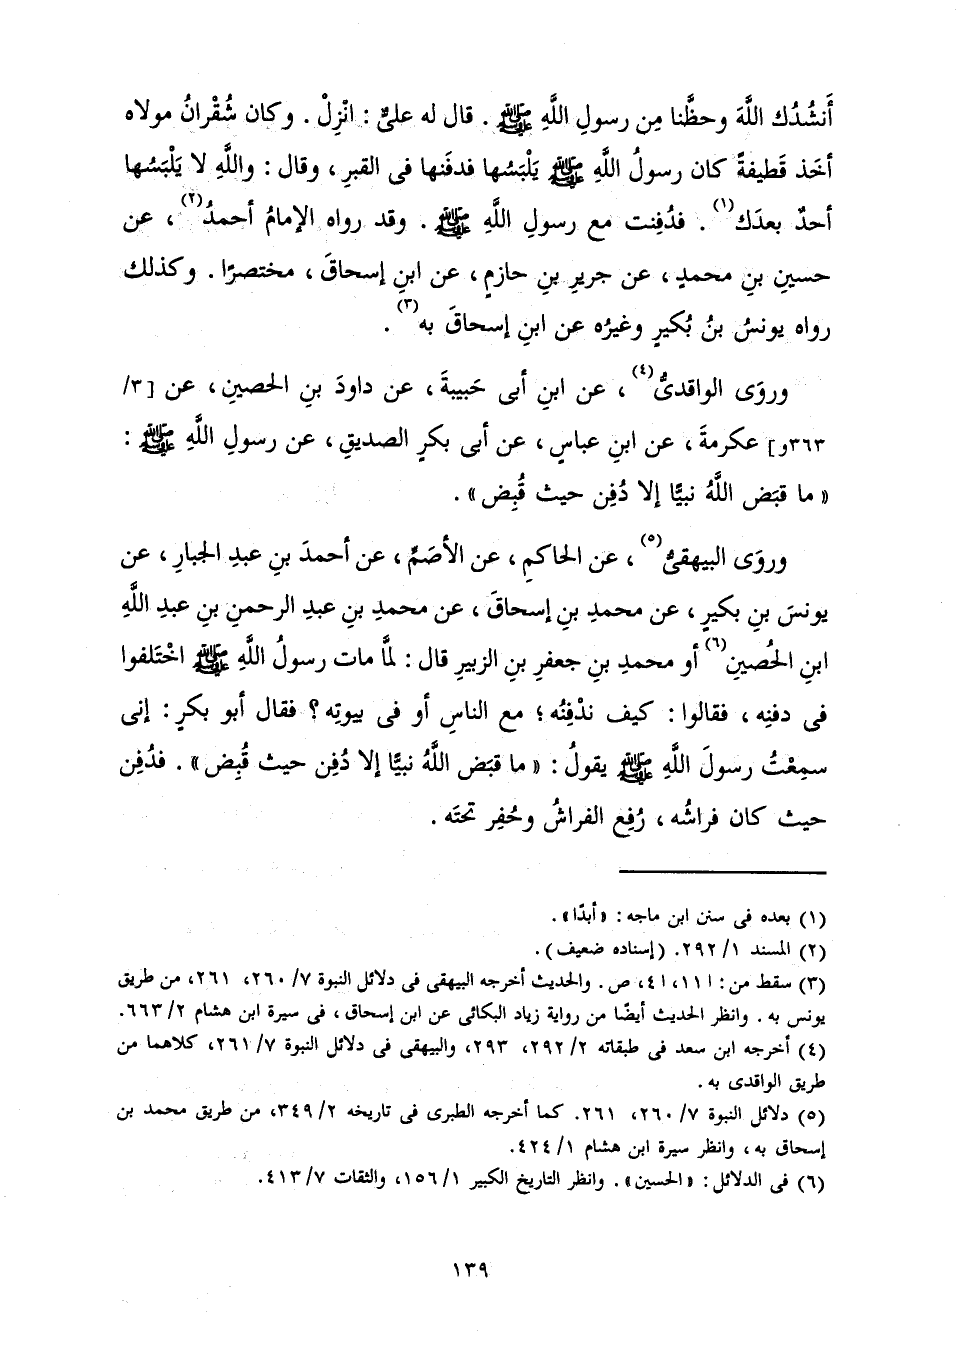 أَنشُدُك اللَّهَ وحظَّنا مِن رسولِ اللَّهِ ﷺ . قال له علىٌّ : انْزِلْ . وكان شُقْرانُ مولاه
أخَذ قَطيفةً كان رسولُ اللَّهِ ﷺ يَلْبَسُها فدفَنها فى القبرِ ، وقال : واللَّهِ لا يَلْبَسُها
أحدٌ بعدَك(١) . فدُفِنت مع رسولِ اللَّهِ ﷺ . وقد رواه الإمامُ أحمدُ(٢) ، عن
حسينِ بنِ محمدٍ ، عن جريرِ بنِ حازمٍ ، عن ابنِ إسحاقَ ، مختصرًا . وكذلك
رواه يونسُ بنُ بُكيرٍ وغيرُه عن ابنِ إسحاقَ به(٣) .
وروَى الواقدىُّ(٤) ، عن ابنِ أبى حَبيبةَ ، عن داودَ بنِ الحصينِ ، عن [٣/
٣٦٣و] عكرمةَ ، عن ابنِ عباسٍ ، عن أبى بكرٍ الصديقِ ، عن رسولِ اللَّهِ ﷺ :
« ما قبَض اللَّهُ نبيًّا إلا دُفِن حيث قُبِض » .
وروَى البيهقىُّ(٥) ، عن الحاكمِ ، عن الأصَمِّ ، عن أحمدَ بنِ عبدِ الجبارِ ، عن
يونسَ بنِ بكيرٍ ، عن محمدِ بنِ إسحاقَ ، عن محمدِ بنِ عبدِ الرحمنِ بنِ عبدِ اللَّهِ
ابنِ الحُصينِ(٦) أو محمدِ بنِ جعفرِ بنِ الزبيرِ قال : لمَّا مات رسولُ اللَّهِ ﷺ اخْتَلفوا
فى دفنِه ، فقالوا : كيف نَدْفِنُه ؛ مع الناسِ أو فى بيوتِه ؟ فقال أبو بكرٍ : إنى
سمِعْتُ رسولَ اللَّهِ ﷺ يقولُ : « ما قبَض اللَّهُ نبيًّا إلا دُفِن حيث قُبِض » . فدُفِن
حيث كان فراشُه ، رُفِع الفراشُ وحُفِر تحتَه .
(١) بعده فى سنن ابن ماجه : «أبدًا» .
(٢) المسند ١/ ٢٩٢. (إسناده ضعيف) .
(٣) سقط من : ا ١١، ا ٤، ص . والحديث أخرجه البيهقى فى دلائل النبوة ٧/ ٢٦٠، ٢٦١، من طريق
يونس به . وانظر الحديث أيضًا من رواية زياد البكائى عن ابن إسحاق ، فى سيرة ابن هشام ٢/ ٦٦٣.
(٤) أخرجه ابن سعد فى طبقاته ٢/ ٢٩٢، ٢٩٣، والبيهقى فى دلائل النبوة ٧/ ٢٦١، كلاهما من
طريق الواقدى به .
(٥) دلائل النبوة ٧/ ٢٦٠، ٢٦١. كما أخرجه الطبرى فى تاريخه ٢/ ٣٤٩، من طريق محمد بن
إسحاق به ، وانظر سيرة ابن هشام ١/ ٤٢٤.
(٦) فى الدلائل : «الحسين» . وانظر التاريخ الكبير ١/ ١٥٦، والثقات ٧/ ٤١٣.
١٣٩